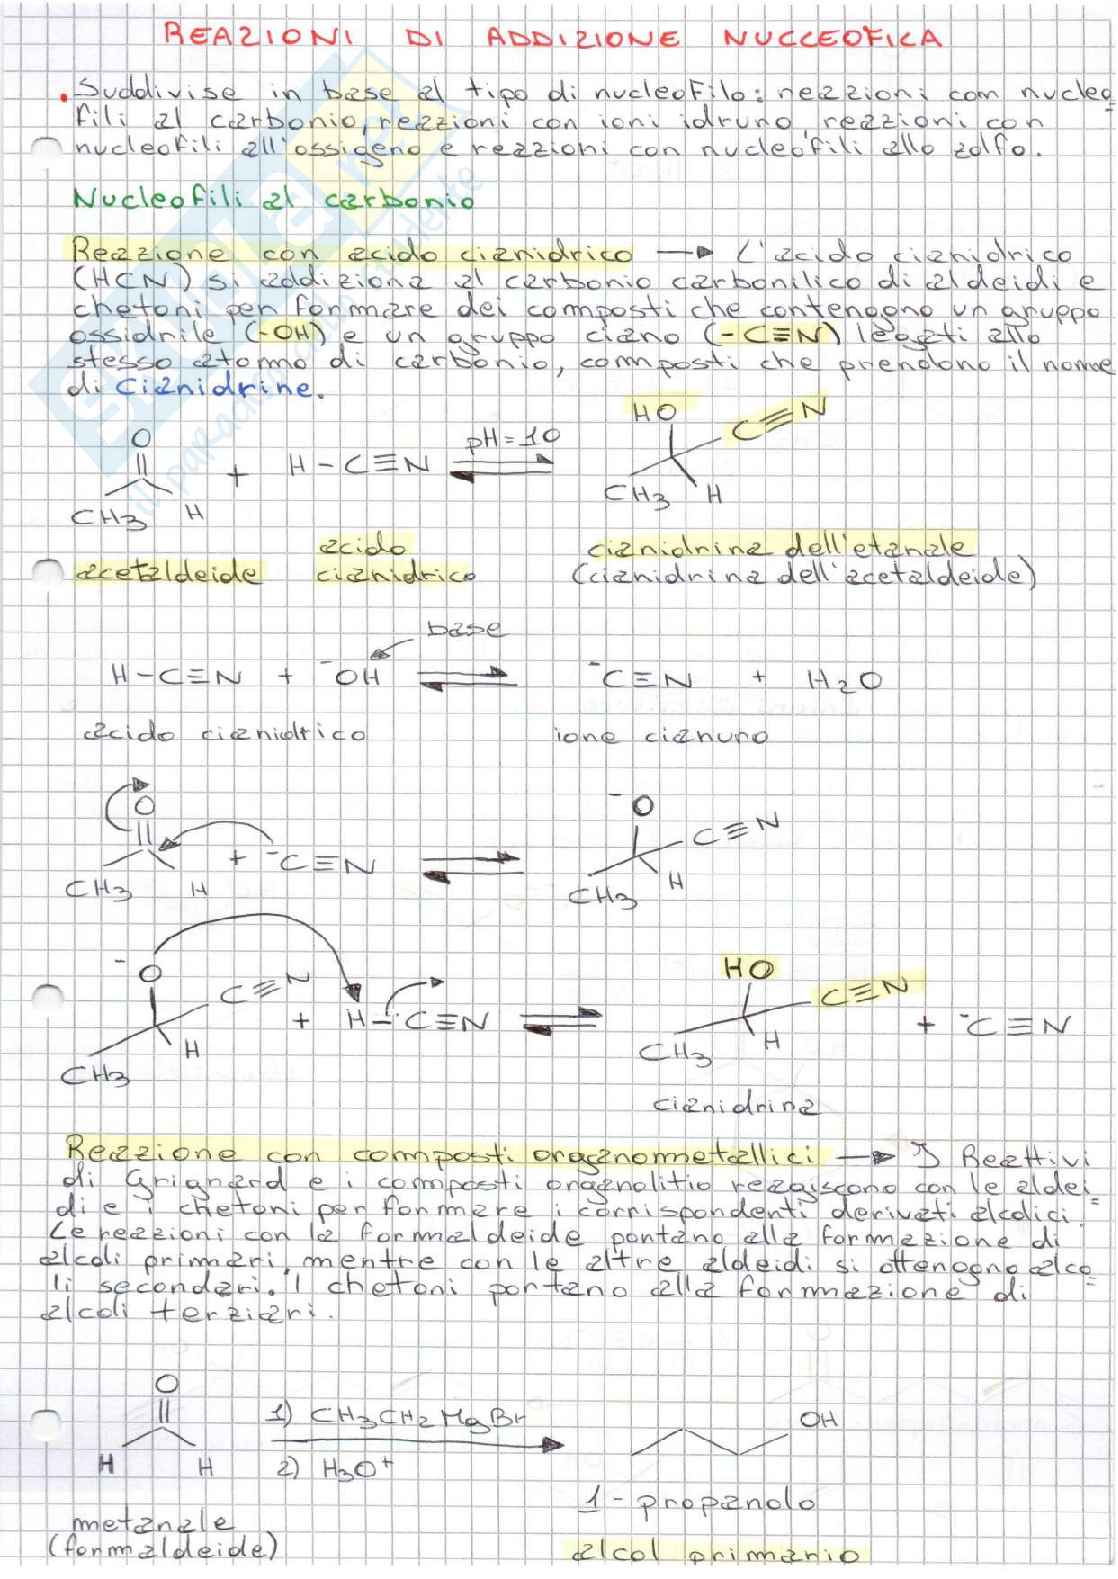 REAZIONI DI ADDIZIONE NUCLEOFILA
• Suddivise in base al tipo di nucleofilo: reazioni con nucleo
fili al carbonio, reazioni con ioni idruro, reazioni con
nucleofili all'ossigeno e reazioni con nucleofili allo zolfo.
Nucleofili al carbonio
Reazione con acido cianidrico → L'acido cianidrico
(HCN) si addiziona al carbonio carbonilico di aldeidi e
chetoni per formare dei composti che contengono un gruppo
ossidrile (-OH) e un gruppo ciano (-C≡N) legati allo
stesso atomo di carbonio, composti che prendono il nome
di cianidrine.
O
CH3 H + H-C≡N pH=10 ⇌ HO C≡N CH3 H
acetaldeide acido cianidrico cianidrina dell'etanale
(cianidrina dell'acetaldeide)
base
H-C≡N + ⁻OH ⇌ ⁻C≡N + H2O
acido cianidrico ione cianuro
O
CH3 H + ⁻C≡N ⇌ ⁻O C≡N CH3 H
⁻O C≡N CH3 H + H-C≡N ⇌ HO C≡N CH3 H + ⁻C≡N
cianidrina
Reazione con composti organometallici → I Reattivi
di Grignard e i composti organolitio reagiscono con le aldei=
di e i chetoni per formare i corrispondenti derivati alcolici.
Le reazioni con la formaldeide portano alla formazione di
alcoli primari, mentre con le altre aldeidi si ottengono alco=
li secondari. I chetoni portano alla formazione di
alcoli terziari.
O
H H 1) CH3CH2MgBr 2) H3O+ → OH
1-propanolo
metanale
(formaldeide) alcol primario